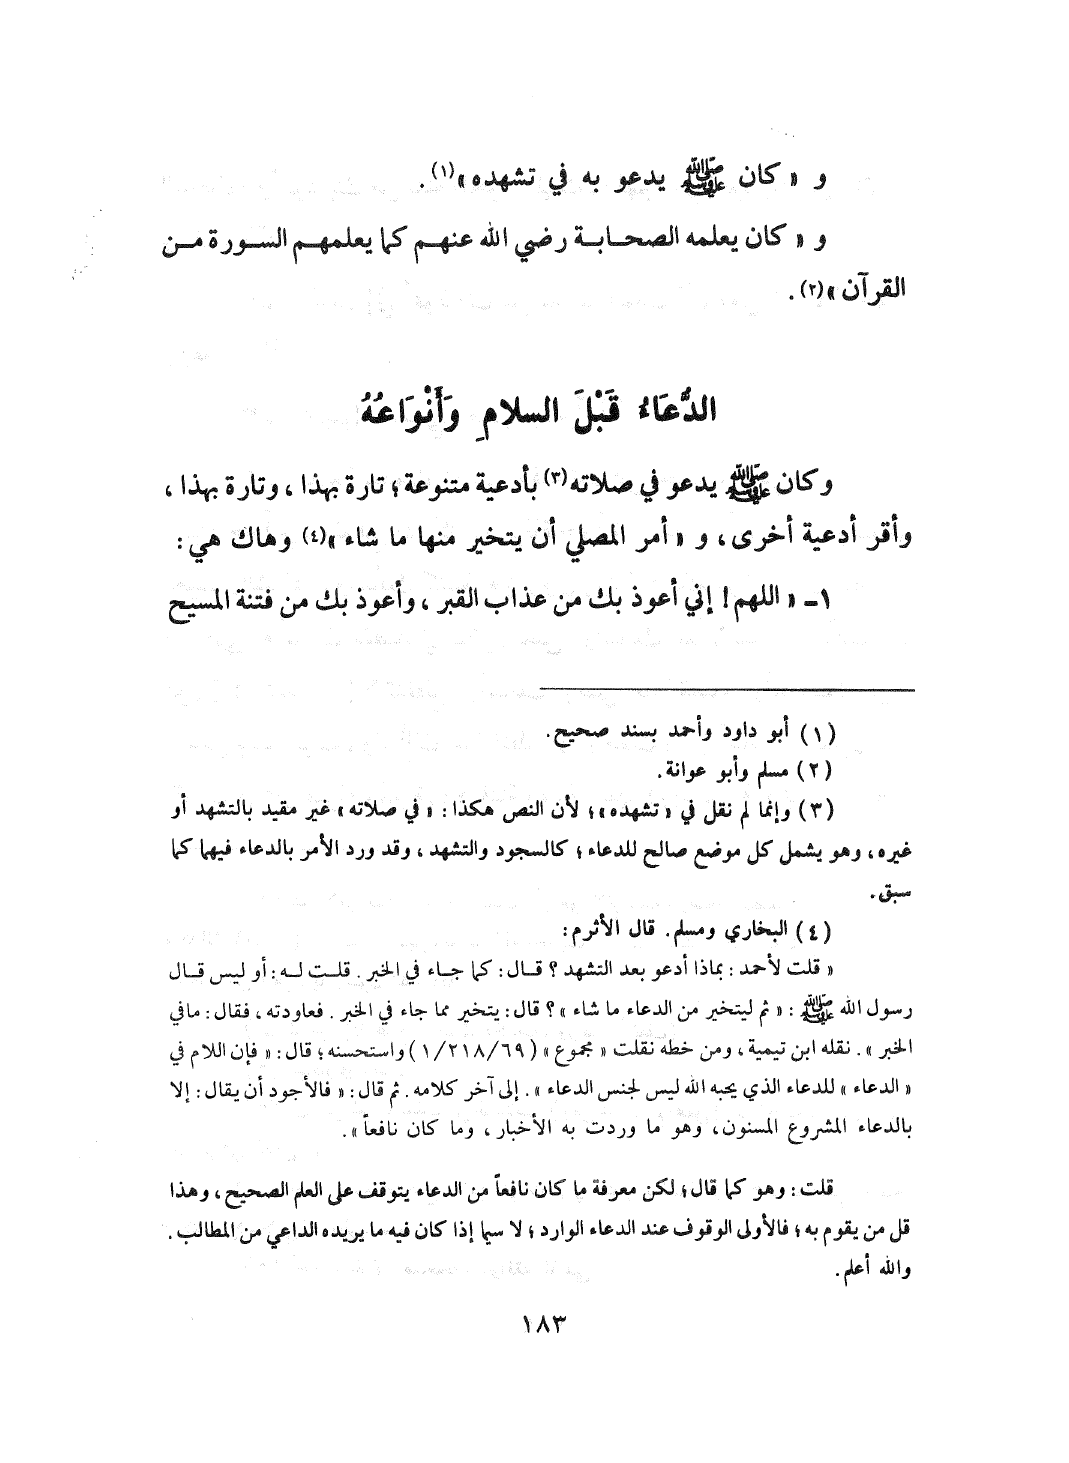 و « كان ﷺ يدعو به في تشهده »(١) .
و « كان يعلمه الصحابة رضي الله عنهم كما يعلمهم السورة من
القرآن »(٢) .
الدُّعَاءُ قَبْلَ السلامِ وَأَنْوَاعُهُ
وكان ﷺ يدعو في صلاته(٣) بأدعية متنوعة ؛ تارة بهذا ، وتارة بهذا ،
وأقر أدعية أخرى ، و « أمر المصلي أن يتخير منها ما شاء »(٤) وهاك هي :
١ـ « اللهم ! إني أعوذ بك من عذاب القبر ، وأعوذ بك من فتنة المسيح
(١) أبو داود وأحمد بسند صحيح .
(٢) مسلم وأبو عوانة .
(٣) وإنما لم نقل في « تشهده » ؛ لأن النص هكذا : « في صلاته » غير مقيد بالتشهد أو
غيره ، وهو يشمل كل موضع صالح للدعاء ؛ كالسجود والتشهد ، وقد ورد الأمر بالدعاء فيهما كما
سبق .
(٤) البخاري ومسلم . قال الأثرم :
« قلت لأحمد : بماذا أدعو بعد التشهد ؟ قال : كما جاء في الخبر . قلت له : أو ليس قال
رسول الله ﷺ : « ثم ليتخير من الدعاء ما شاء » ؟ قال : يتخير مما جاء في الخبر . فعاودته ، فقال : مافي
الخبر » . نقله ابن تيمية ، ومن خطه نقلت « مجموع » (٦٩/٢١٨/١) واستحسنه ؛ قال : « فإن اللام في
« الدعاء » للدعاء الذي يحبه الله ليس لجنس الدعاء » . إلى آخر كلامه . ثم قال : « فالأجود أن يقال : إلا
بالدعاء المشروع المسنون ، وهو ما وردت به الأخبار ، وما كان نافعاً » .
قلت : وهو كما قال ؛ لكن معرفة ما كان نافعاً من الدعاء يتوقف على العلم الصحيح ، وهذا
قل من يقوم به ؛ فالأولى الوقوف عند الدعاء الوارد ؛ لا سيما إذا كان فيه ما يريده الداعي من المطالب .
والله أعلم .
١٨٣